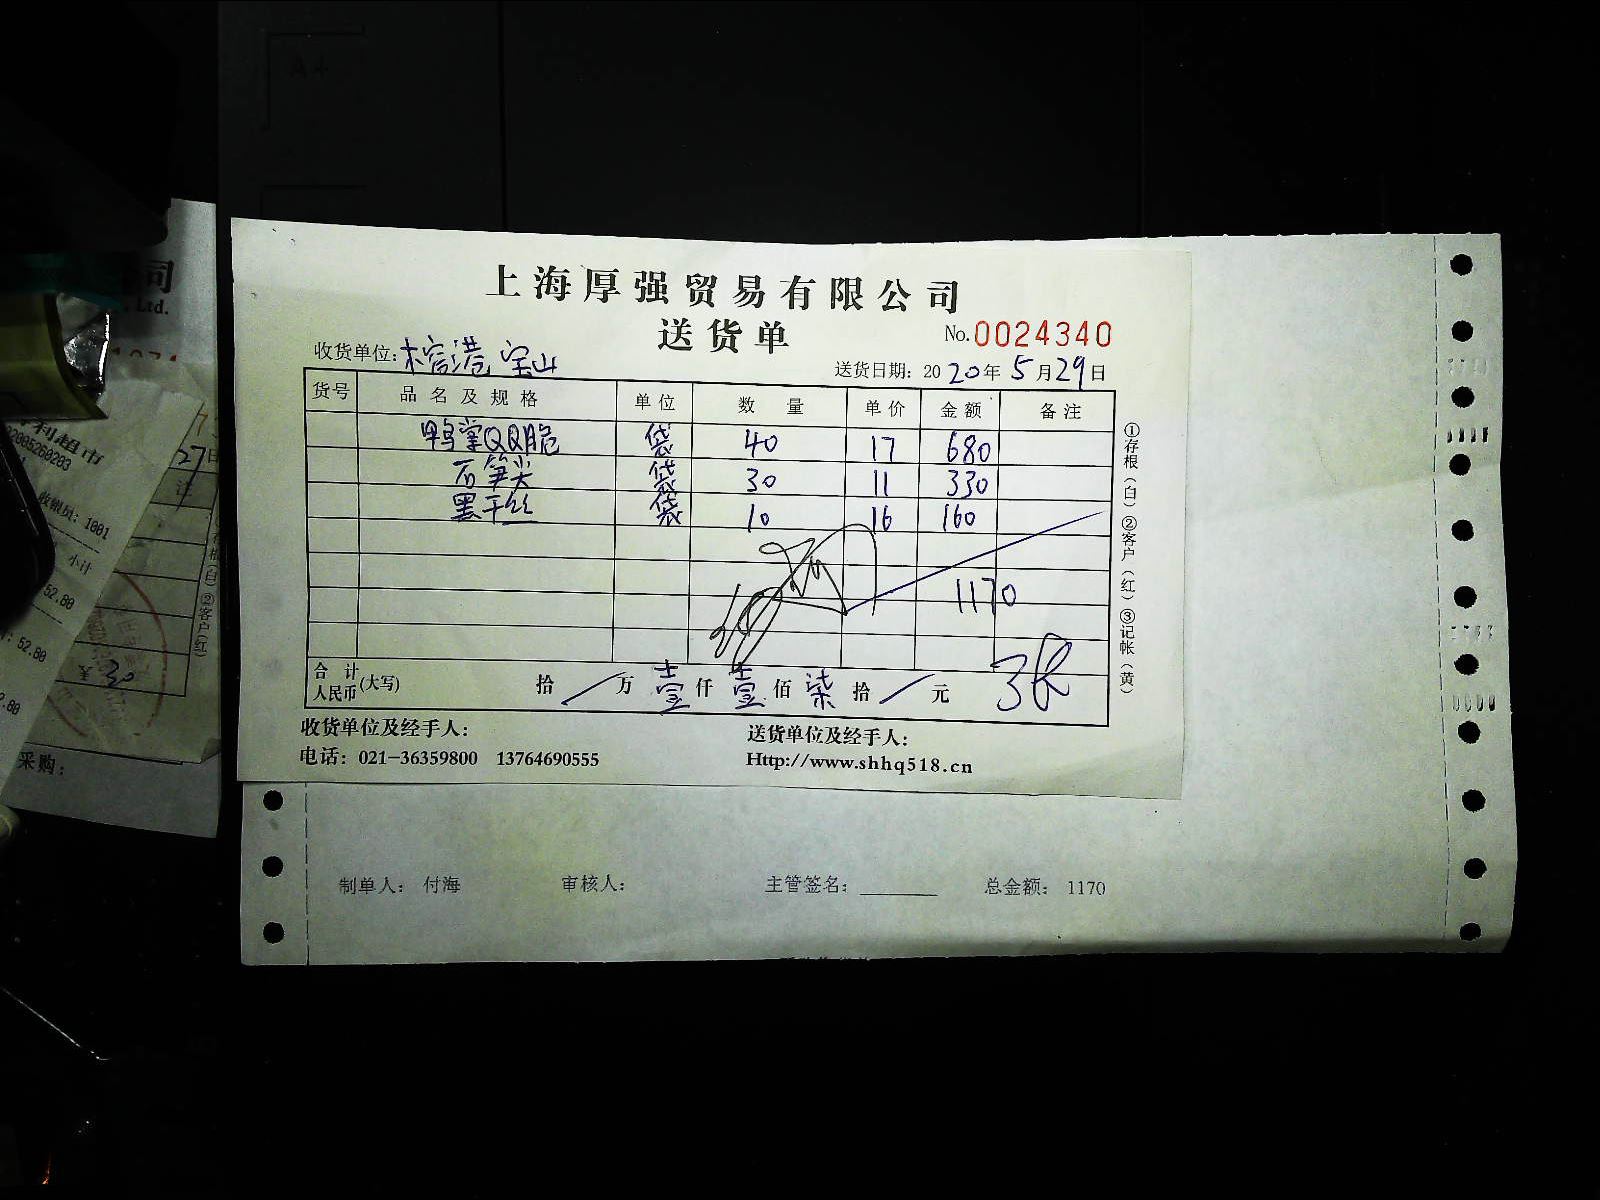 上海厚强贸易有限公司
送货单
No.0024340
收货单位：榕港 宝山
送货日期：2020年5月29日
货号 品名及规格 单位 数量 单价 金额 备注
鸭掌QQ脆 袋 40 17 680
石笋尖 袋 30 11 330
黑干丝 袋 10 16 160
1170
合计人民币(大写) 拾 / 万 壹 仟 壹 佰 柒 拾 / 元
收货单位及经手人：
送货单位及经手人：
电话：021-36359800 13764690555
Http://www.shhq518.cn
①存根(白)②客户(红)③记帐(黄)
制单人：付海 审核人： 主管签名：________ 总金额：1170
司
Ltd.
利超市
02005260203
收银员：1001
小计
52.80
52.80
27日
注
②客户(红)
采购：